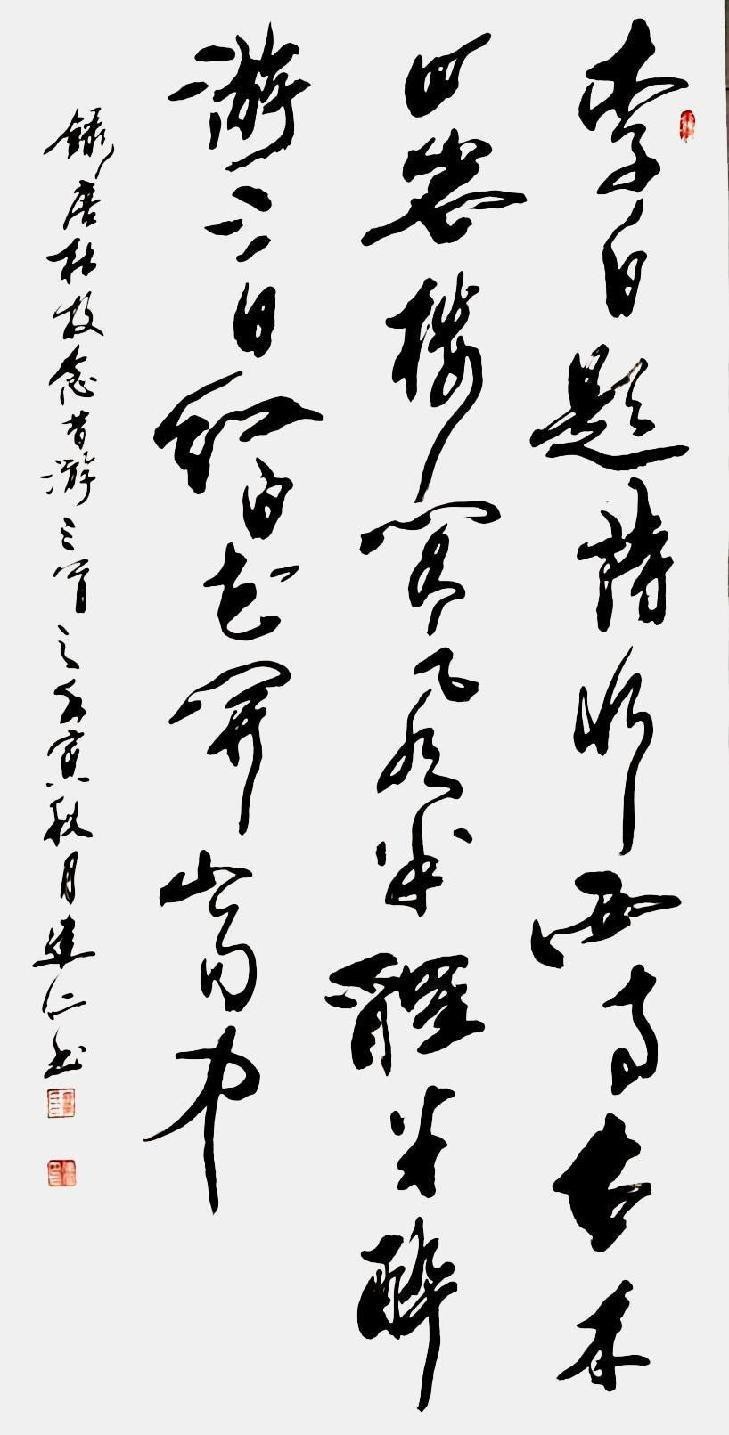 李白題詩水西寺古木
回岩樓閣風半醒半醉
游三日紅白花開山雨中
錄唐杜牧念昔游三首之壬寅秋月建仁书